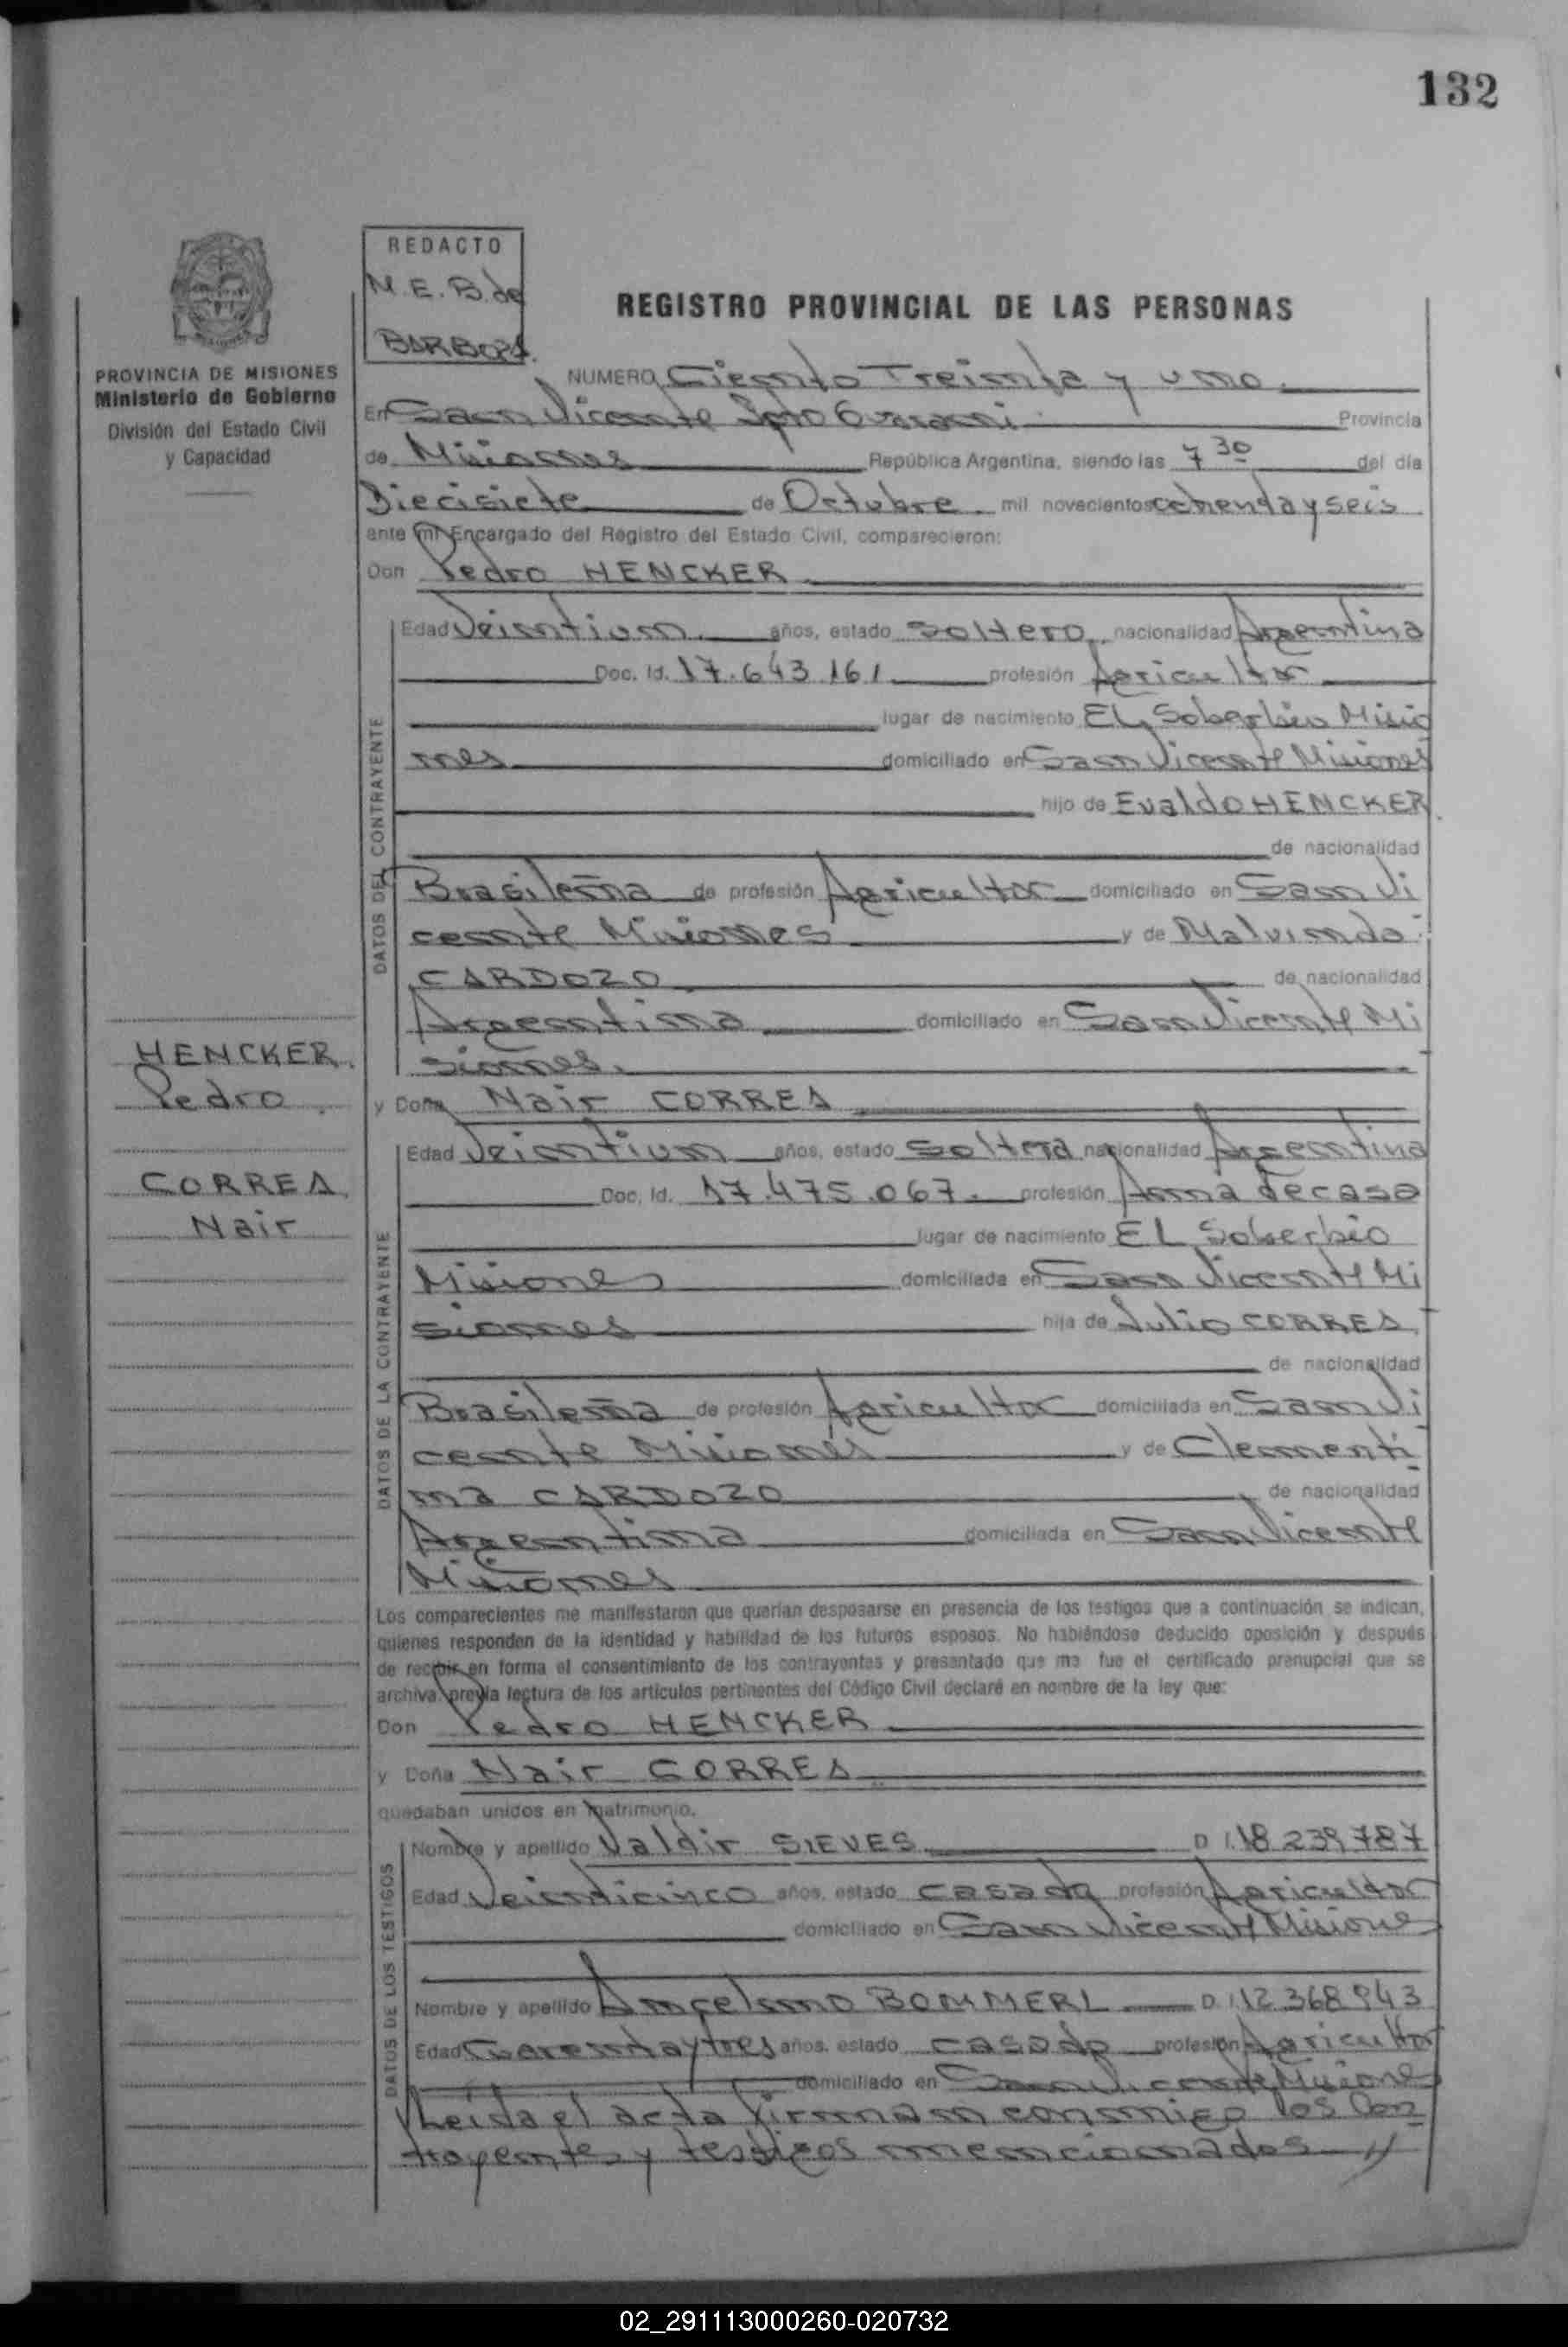 132
REDACTO
M. E. B. de
BARBOZA.
REGISTRO PROVINCIAL DE LAS PERSONAS
PROVINCIA DE MISIONES
Ministerio de Gobierno
División del Estado Civil
y Capacidad
NUMERO Ciento Treinta y uno
En San Vicente Dpto Guarani Provincia
de Misiones República Argentina, siendo las 7 30 del día
Diecisiete de Octubre mil novecientos ochenta y seis
ante mi Encargado del Registro del Estado Civil, comparecieron:
Don Pedro HENCKER
DATOS DEL CONTRAYENTE
Edad Veintiun años, estado Soltero nacionalidad Argentina
Doc. Id. 17.643.161 profesión Agricultor
lugar de nacimiento EL Soberbio Misio
nes domiciliado en San Vicente Misiones
hijo de Evaldo HENCKER
de nacionalidad
Brasileña de profesión Agricultor domiciliado en San Vi
cente Misiones y de Malvinda
CARDOZO de nacionalidad
Argentina domiciliado en San Vicente Mi
siones.
HENCKER
Pedro
CORREA
Nair
y Doña Nair CORREA
DATOS DE LA CONTRAYENTE
Edad Veintiun años, estado Soltera nacionalidad Argentina
Doc. Id. 17.475.067. profesión Ama de casa
lugar de nacimiento EL Soberbio
Misiones domiciliada en San Vicente Mi
siones hija de Julio CORREA
de nacionalidad
Brasileña de profesión Agricultor domiciliada en San Vi
cente Misiones y de Clementi
na CARDOZO de nacionalidad
Argentina domiciliada en San Vicente
Misiones
Los comparecientes me manifestaron que querían desposarse en presencia de los testigos que a continuación se indican,
quienes responden de la identidad y habilidad de los futuros esposos. No habiéndose deducido oposición y después
de recibir en forma el consentimiento de los contrayentes y presentado que me fue el certificado prenupcial que se
archiva, previa lectura de los artículos pertinentes del Código Civil declaré en nombre de la ley que:
Don Pedro HENCKER
y Doña Nair CORREA
quedaban unidos en matrimonio.
DATOS DE LOS TESTIGOS
Nombre y apellido Valdir SIEVES D.I. 18.239.787
Edad Veinticinco años, estado casado profesión Agricultor
domiciliado en San Vicente Misiones
Nombre y apellido Angelsmo BOMMERL D.I. 12.368.943
Edad Cuarenta y tres años, estado casado profesión Agricultor
domiciliado en San Vicente Misiones
Leída el acta firman conmigo los Con
trayentes y testigos mencionados
02_291113000260-020732